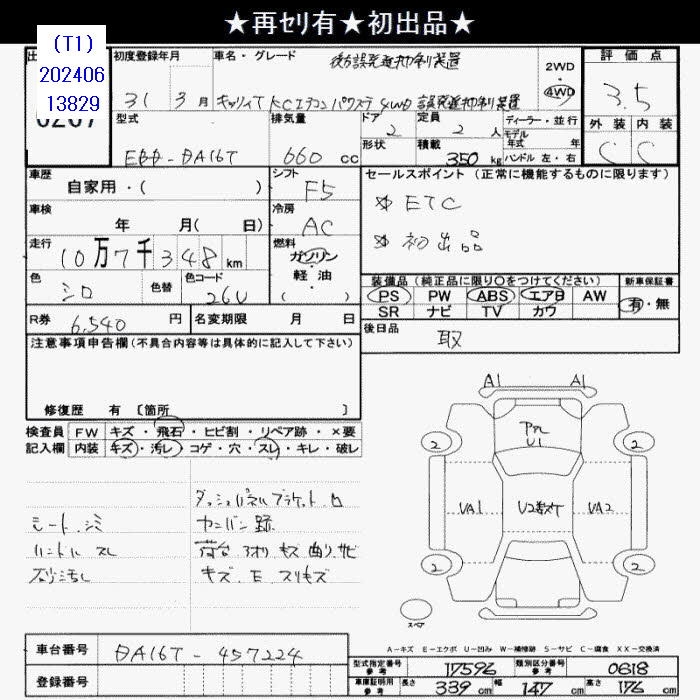 ★再ｾﾘ有★初出品★
(T1)
202406
13829
初度登録年月
31 3月
車名・グレード
後方誤発進抑制装置
キャリイT KCエアコンパワステ 4WD 誤発進抑制装置
2WD
・
4WD
評価点
3.5
外装 内装
C C
型式
EBD-DA16T
排気量
660 cc
ドア
2
定員
2 人
形状
積載
350 kg
ディーラー・並行
モデル
年式 年
ハンドル 左・右
車歴
自家用・( )
シフト
F5
車検
年 月( 日)
冷房
AC
走行
10万7千348 km
燃料
ガソリン
・
軽油
( )
色
シロ
色替
色コード
26U
R券
6,540 円
名変期限 月 日
セールスポイント (正常に機能するものに限ります)
※ ETC
※ 初出品
装備品 (純正品に限り〇をつけてください)
PS PW ABS エアB AW
SR ナビ TV カワ
新車保証書
有・無
後日品
取
注意事項申告欄(不具合内容等は具体的に記入して下さい)
修復歴 有 〔箇所 〕
検査員
記入欄
FW キズ・飛石・ヒビ割・リペア跡・×要
内装 キズ・汚レ・コゲ・穴・スレ・キレ・破レ
シート シミ
ハンドル スレ
ダッシュパネルブラケット
カンバン跡
荷台 キズ 曲リ サビ
キズ E スリキズ
A1 A1
U1
2 2
UA1 UA2
2 2
スペア
A－キズ E－エクボ U－凹み W－補修跡 S－サビ C－腐食 XX－交換済
車台番号
DA16T - 457224
登録番号
型式指定番号
参考
17596
類別区分番号
参考
0618
車庫証明用
参考
長さ 339 cm 幅 147 cm 高さ 176 cm